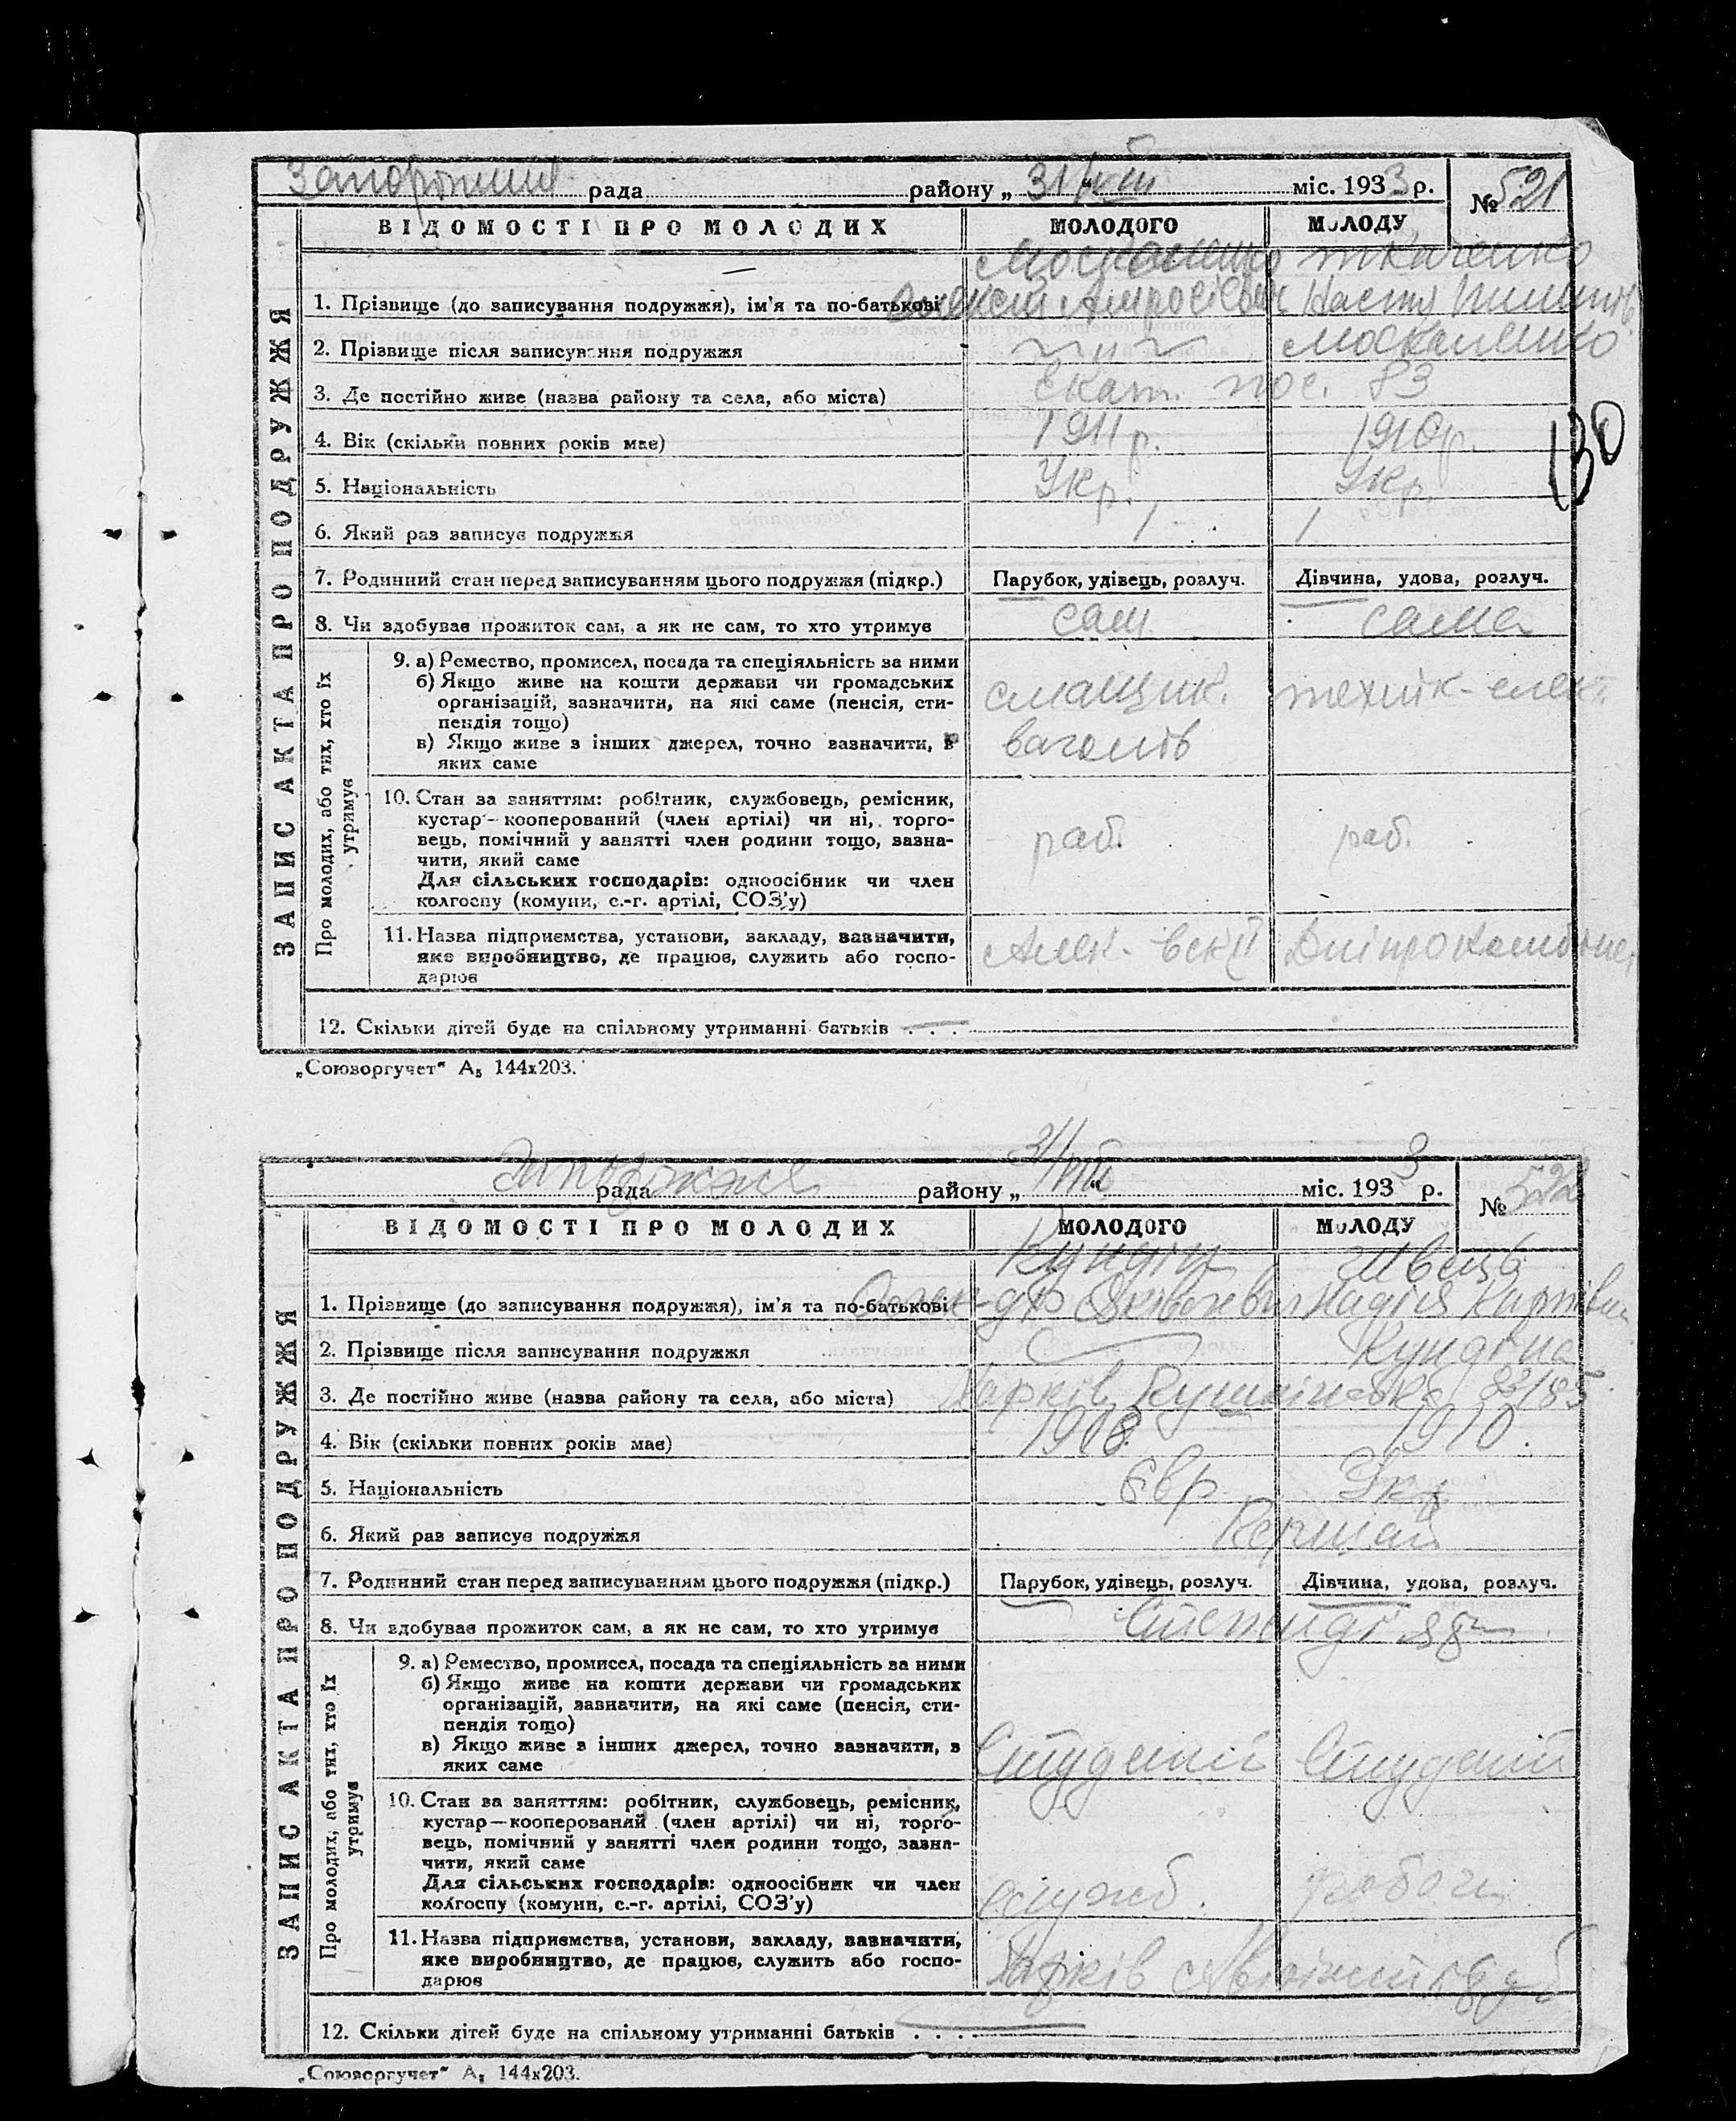 Запоріжжя рада району „ 31/VIII “ міс. 1933 р. № 521
ВІДОМОСТІ ПРО МОЛОДИХ МОЛОДОГО МОЛОДУ
Москаленко Ткаченко
1. Прізвище (до записування подружжя), ім'я та по-батькові Олексій Амросієвич Настя Пилипів.
2. Прізвище після записування подружжя ~ " ~ Москаленко
3. Де постійно живе (назва району та села, або міста) Екат. пос. 83
4. Вік (скільки повних років має) 1911 р. 1910 р.
5. Національність Укр. Укр.
6. Який раз записує подружжя 1 1
7. Родинний стан перед записуванням цього подружжя (підкр.) Парубок, удівець, розлуч. Дівчина, удова, розлуч.
8. Чи здобуває прожиток сам, а як не сам, то хто утримує сам сама
ЗАПИС АКТА ПРО ПОДРУЖЖЯ
Про молодих, або тих, хто їх утримує
9. а) Ремество, промисел, посада та спеціяльність за ними
б) Якщо живе на кошти держави чи громадських
організацій, зазначити, на які саме (пенсія, сти-
пендія тощо)
в) Якщо живе з інших джерел, точно зазначити, в
яких саме
смащик. технік-елект.
вагонів
10. Стан за заняттям: робітник, службовець, ремісник,
кустар—кооперований (член артілі) чи ні, торго-
вець, помічний у занятті член родини тощо, зазна-
чити, який саме
Для сільських господарів: одноосібник чи член
колгоспу (комуни, с.-г. артілі, СОЗ'у)
раб. раб.
11. Назва підприємства, установи, закладу, зазначити,
яке виробництво, де працює, служить або госпо-
дарює
Алек-вск II
12. Скільки дітей буде на спільному утриманні батьків . . . —
130
„Союзоргучет“ А₅ 144x203.
Запоріжжя рада району „ 31/VIII “ міс. 1933 р. № 522
ВІДОМОСТІ ПРО МОЛОДИХ МОЛОДОГО МОЛОДУ
Кундін Швець
1. Прізвище (до записування подружжя), ім'я та по-батькові Олек-др Яківлевич Надія Карпівна
2. Прізвище після записування подружжя Кундіна
3. Де постійно живе (назва району та села, або міста) Харків 83/85
4. Вік (скільки повних років має) 1908 1910
5. Національність Євр Укр
6. Який раз записує подружжя Перший
7. Родинний стан перед записуванням цього подружжя (підкр.) Парубок, удівець, розлуч. Дівчина, удова, розлуч.
8. Чи здобуває прожиток сам, а як не сам, то хто утримує
ЗАПИС АКТА ПРО ПОДРУЖЖЯ
Про молодих, або тих, хто їх утримує
9. а) Ремество, промисел, посада та спеціяльність за ними
б) Якщо живе на кошти держави чи громадських
організацій, зазначити, на які саме (пенсія, сти-
пендія тощо)
в) Якщо живе з інших джерел, точно зазначити, в
яких саме
Студент Студент
10. Стан за заняттям: робітник, службовець, ремісник,
кустар—кооперований (член артілі) чи ні, торго-
вець, помічний у занятті член родини тощо, зазна-
чити, який саме
Для сільських господарів: одноосібник чи член
колгоспу (комуни, с.-г. артілі, СОЗ'у)
служб. робочі
11. Назва підприємства, установи, закладу, зазначити,
яке виробництво, де працює, служить або госпо-
дарює
Харків
12. Скільки дітей буде на спільному утриманні батьків . . . . —
„Союзоргучет“ А₅ 144x203.